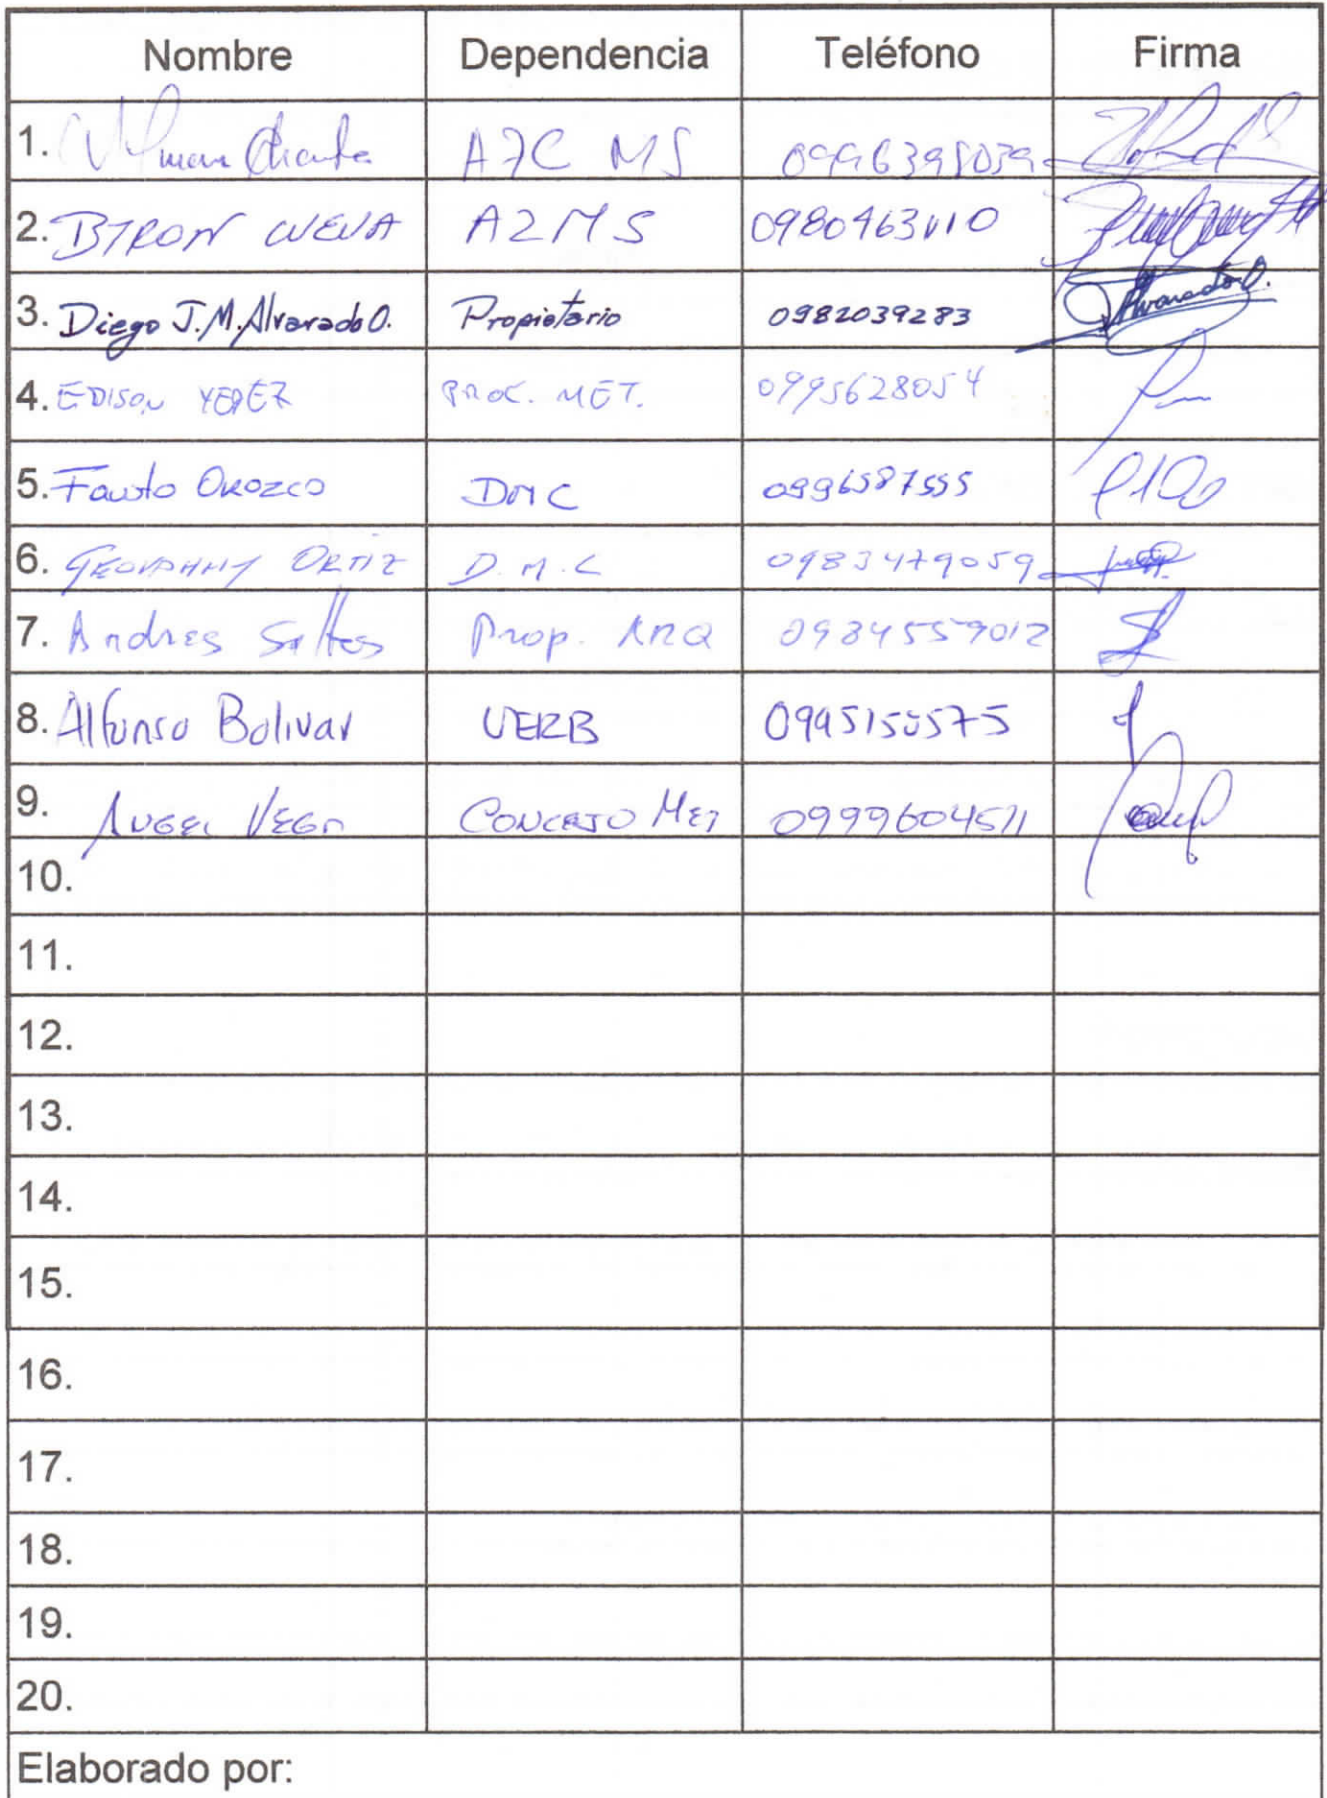 Nombre Dependencia Teléfono Firma
1. MS
2. BYRON CUEVA AZMS
3. Diego J.M. Alvarado O. Propietario 0982039283 Alvarado O.
4. EDISON YEPEZ PROC. MET. 0995628054
5. Fausto OROZCO DMC 0996587555
6. GEOVANNY ORTIZ D.M.C 0983479059
7. Andres Saltos Prop. ARQ 0984559012
8. Alfonso Bolivar UERB
9. ANGEL VEGA CONCEJO MET 0999604511
10.
11.
12.
13.
14.
15.
16.
17.
18.
19.
20.
Elaborado por: